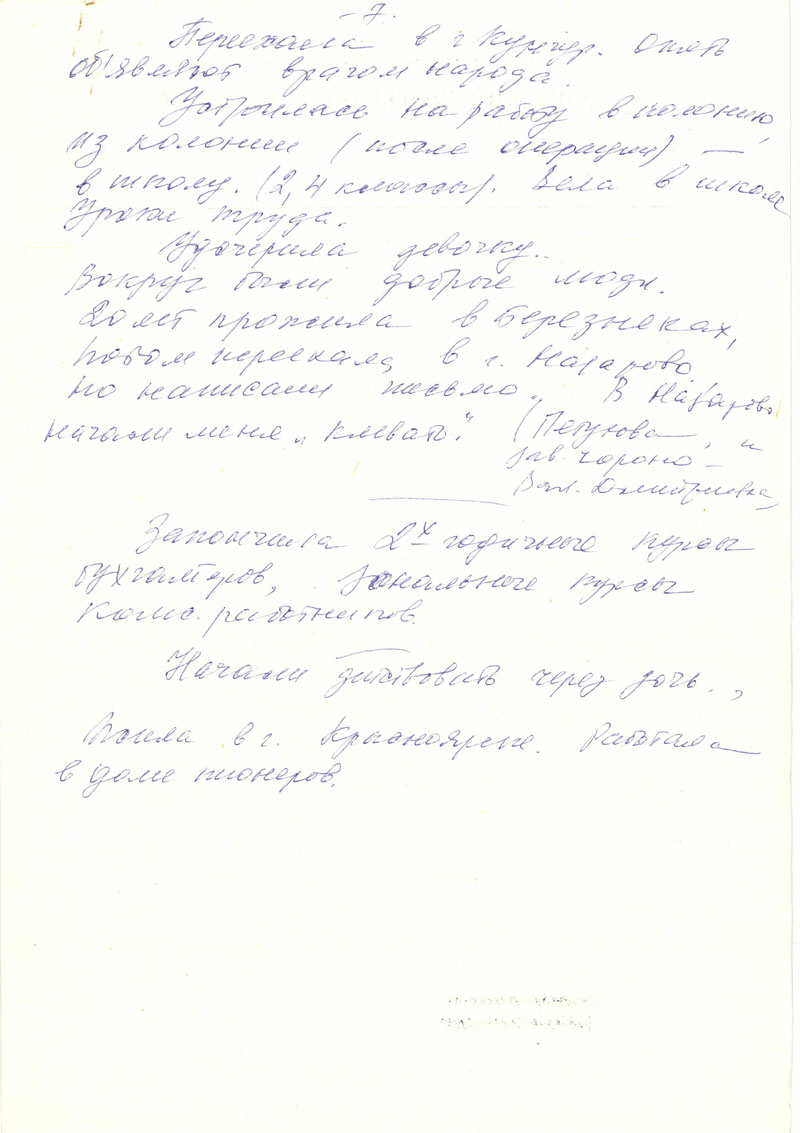 - 7.
Переехала в г Кунгур. Опять
об'являют врагом народа.
Устроилась на работу в колонию,
из колонии (после операции) —
в школу. (2, 4 классы). Вела в школе
Уроки труда.
Удочерила девочку..
Вокруг были добрые люди.
20 лет прожила в Березняках,
потом переехала в г. Назарово
но написали письмо. В Назарово
начали меня „клевать". (Петухова, и
зав. гороно —
Вал. Дмитриевна,
Закончила 2х годичные курсы
бухгалтеров, зональные курсы
комс. работников.
Начали действовать через дочь.,
Жила в г. Красноярске. Работала
в доме пионеров.